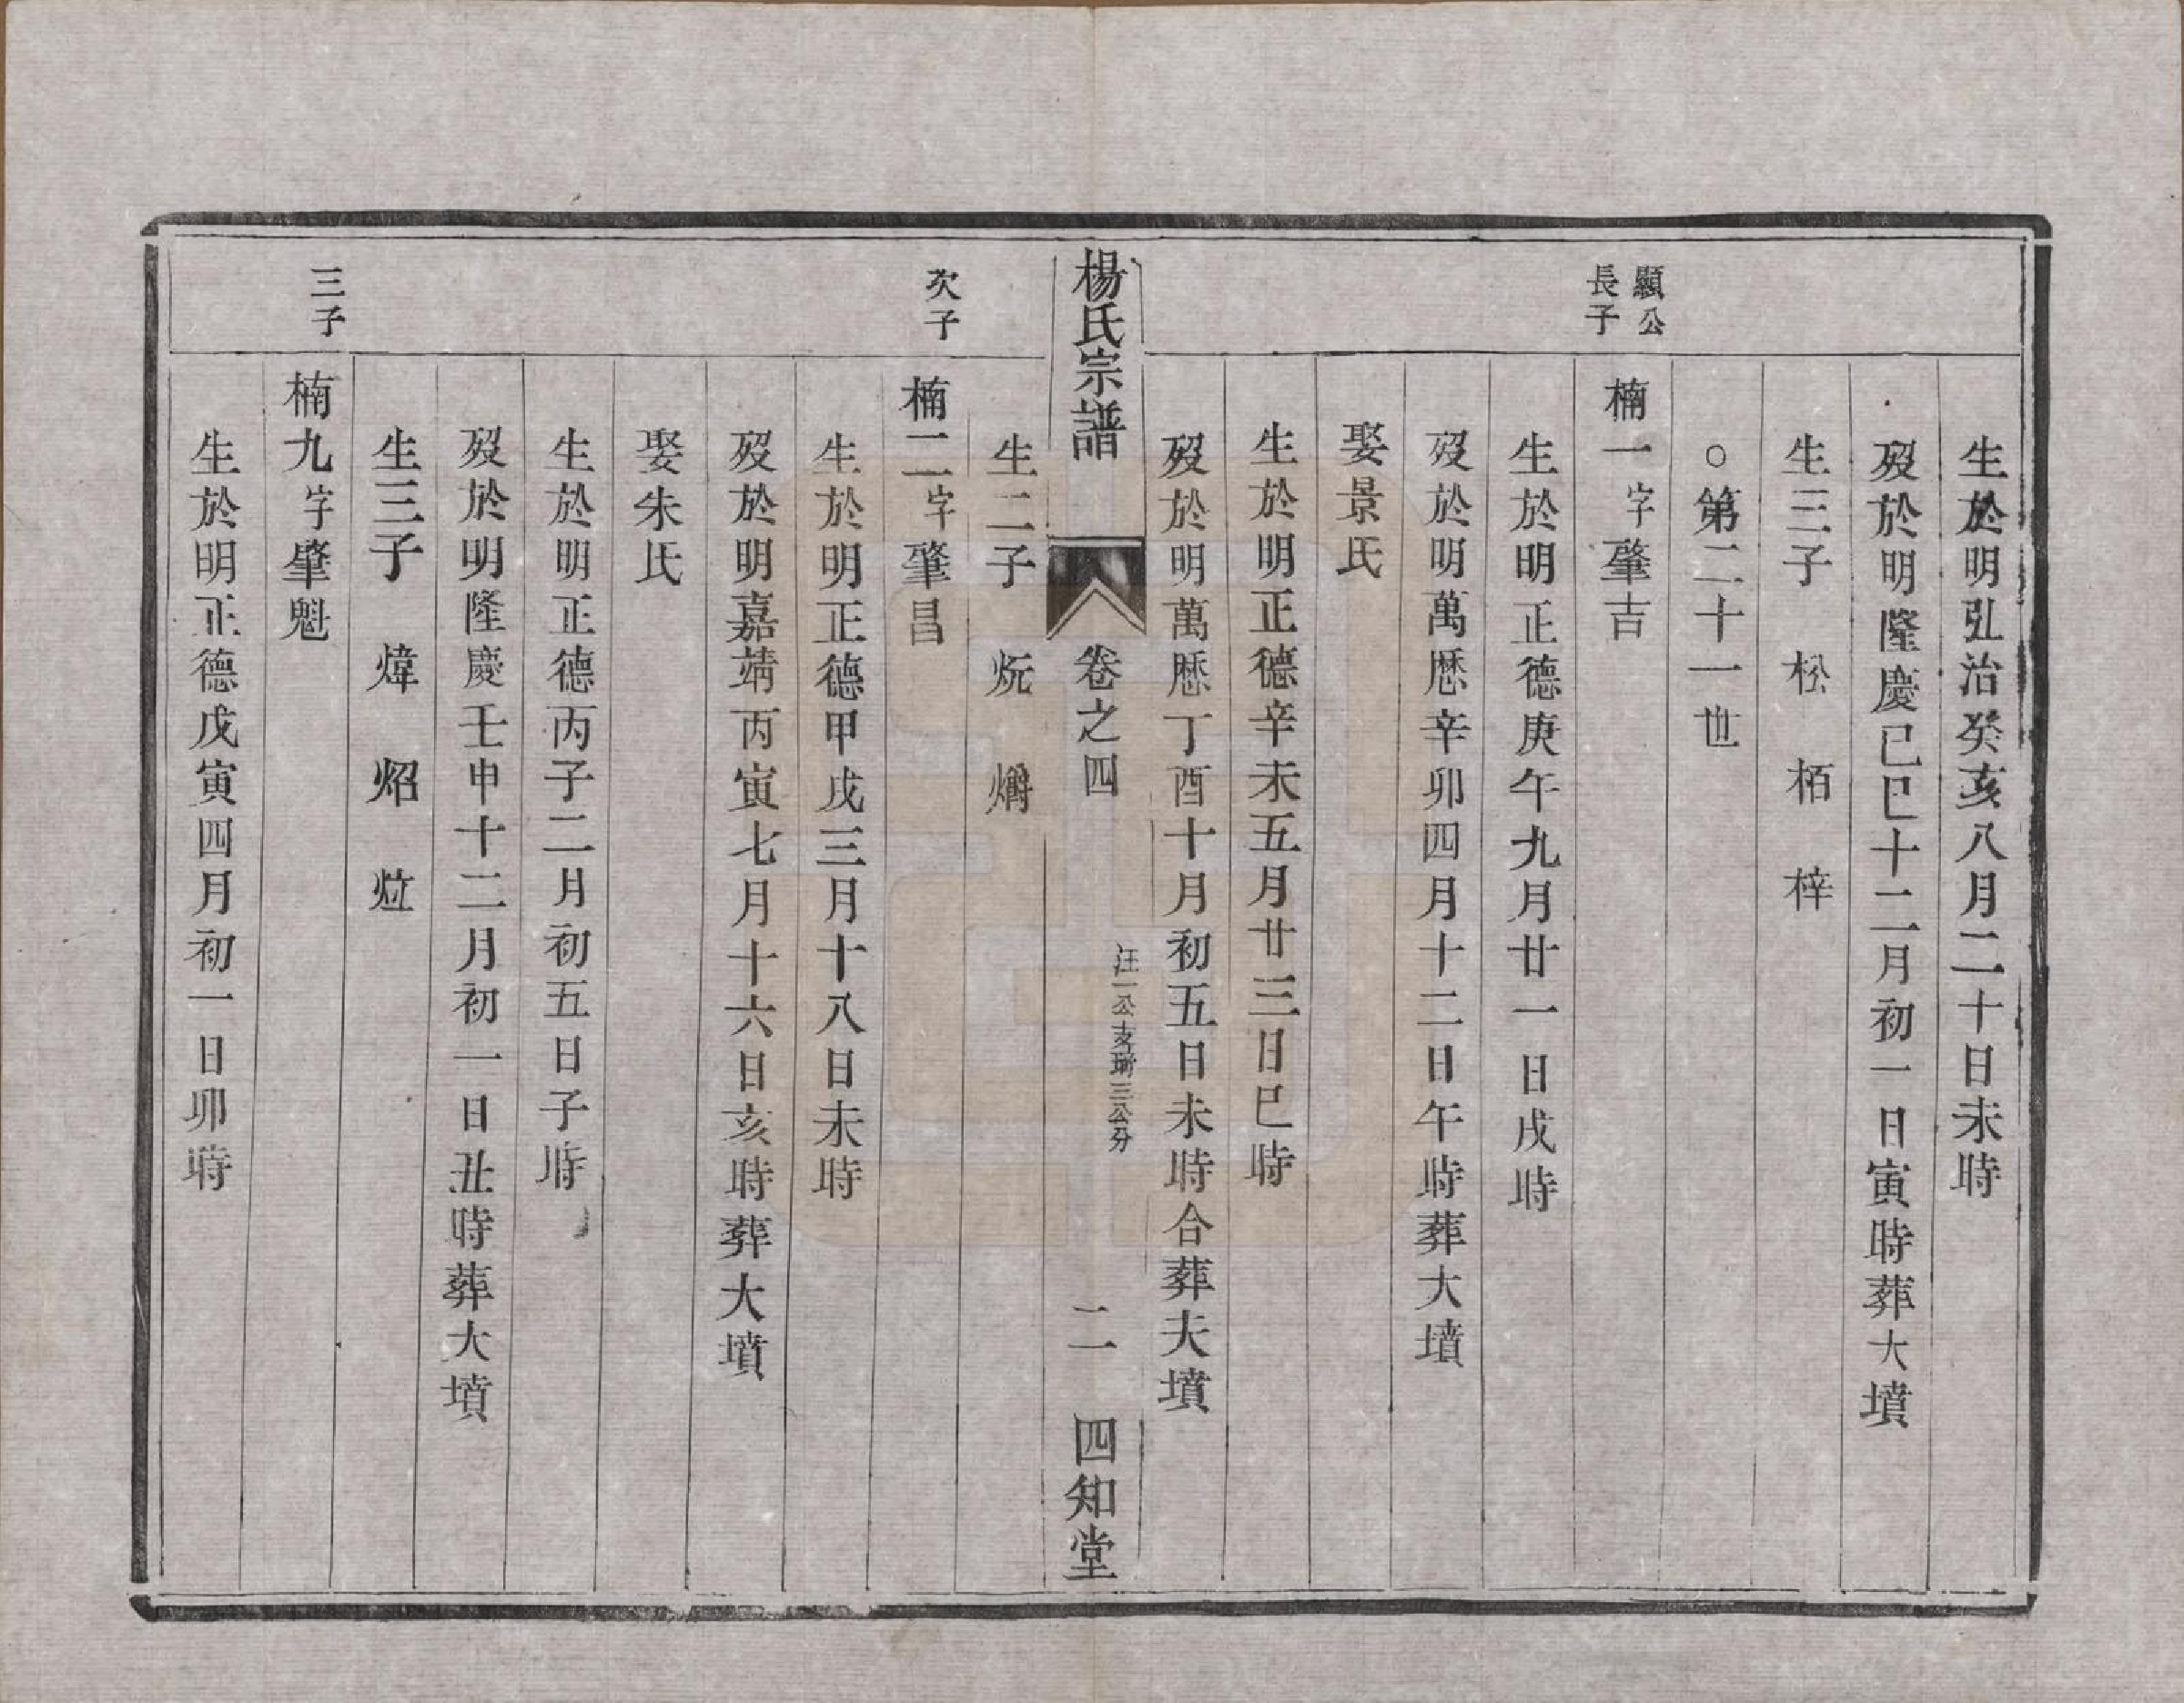 生於明弘治癸亥八月二十日未時
歿於明隆慶己巳十二月初一日寅時葬大墳
生三子　松　栢　梓
○第二十一世
顯公
長子
楠一字肇吉
生於明正德庚午九月廿一日戌時
歿於明萬歷辛卯四月十二日午時葬大墳
娶景氏
生於明正德辛未五月廿三日巳時
歿於明萬歷丁酉十月初五日未時合葬大墳
楊氏宗譜
卷之四
汪一公支三公分
二
四知堂
生二子　炕　爝
次子
楠二字肇昌
生於明正德甲戌三月十八日未時
歿於明嘉靖丙寅七月十六日亥時葬大墳
娶朱氏
生於明正德丙子二月初五日子時
歿於明隆慶壬申十二月初一日丑時葬大墳
生三子　煒　炤　㷉
三子
楠九字肇魁
生於明正德戊寅四月初一日卯時